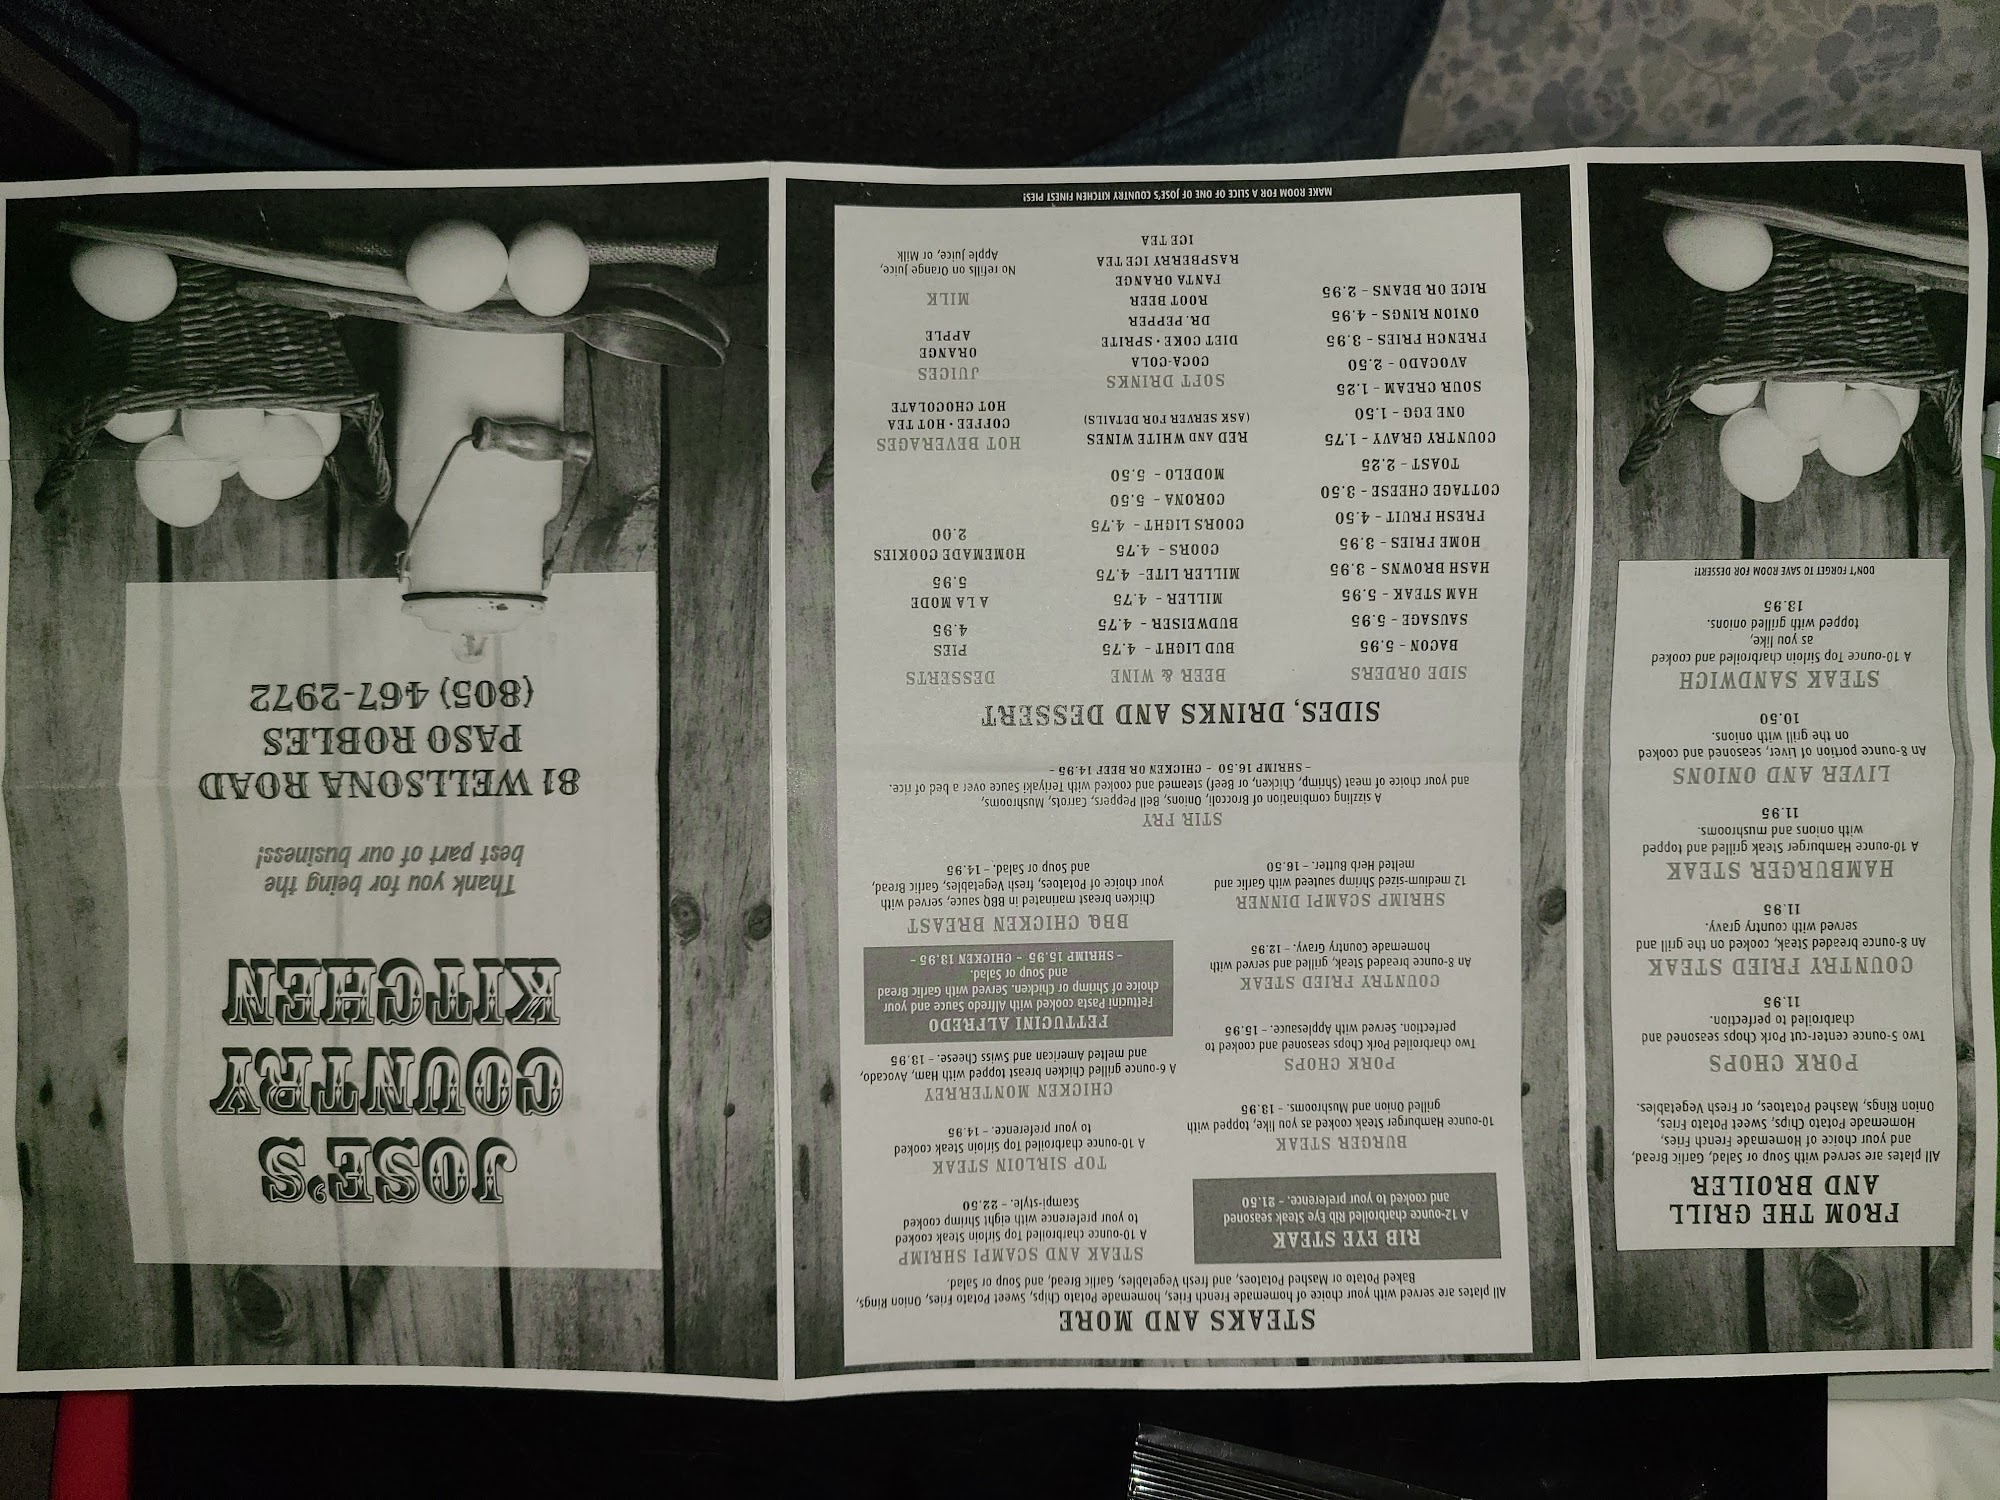 FROM THE GRILL
AND BROILER
All plates are served with Soup or Salad, Garlic Bread,
and your choice of Homemade French Fries,
Homemade Potato Chips, Sweet Potato Fries,
Onion Rings, Mashed Potatoes, or Fresh Vegetables.
PORK CHOPS
Two 5-ounce center-cut Pork Chops seasoned and
charbroiled to perfection.
11.95
COUNTRY FRIED STEAK
An 8-ounce breaded Steak, cooked on the grill and
served with country gravy.
11.95
HAMBURGER STEAK
A 10-ounce Hamburger Steak grilled and topped
with onions and mushrooms.
11.95
LIVER AND ONIONS
An 8-ounce portion of Liver, seasoned and cooked
on the grill with onions.
10.50
STEAK SANDWICH
A 10-ounce Top Sirloin charbroiled and cooked
as you like,
topped with grilled onions.
13.95
DON'T FORGET TO SAVE ROOM FOR DESSERT!
STEAKS AND MORE
All plates are served with your choice of homemade French Fries, homemade Potato Chips, Sweet Potato Fries, Onion Rings,
Baked Potato or Mashed Potatoes, and fresh Vegetables, Garlic Bread, and Soup or Salad.
RIB EYE STEAK
A 12-ounce charbroiled Rib Eye Steak seasoned
and cooked to your preference. - 21.50
BURGER STEAK
10-ounce Hamburger Steak cooked as you like, topped with
grilled Onion and Mushrooms. - 13.95
PORK CHOPS
Two charbroiled Pork Chops seasoned and cooked to
perfection. Served with Applesauce. - 15.95
COUNTRY FRIED STEAK
An 8-ounce breaded Steak, grilled and served with
homemade Country Gravy. - 12.95
SHRIMP SCAMPI DINNER
12 medium-sized Shrimp sauteed with Garlic and
melted Herb Butter. - 16.50
STEAK AND SCAMPI SHRIMP
A 10-ounce charbroiled Top Sirloin Steak cooked
to your preference with eight Shrimp cooked
Scampi-style. - 22.50
TOP SIRLOIN STEAK
A 10-ounce charbroiled Top Sirloin Steak cooked
to your preference. - 14.95
CHICKEN MONTERREY
A 6-ounce grilled Chicken breast topped with Ham, Avocado,
and melted American and Swiss Cheese. - 13.95
FETTUCINI ALFREDO
Fettucini Pasta cooked with Alfredo Sauce and your
choice of Shrimp or Chicken. Served with Garlic Bread
and Soup or Salad.
- SHRIMP 15.95 - CHICKEN 13.95 -
BBQ CHICKEN BREAST
Chicken breast marinated in BBQ sauce, served with
your choice of Potatoes, fresh Vegetables, Garlic Bread,
and Soup or Salad. - 14.95
STIR FRY
A sizzling combination of Broccoli, Onions, Bell Peppers, Carrots, Mushrooms,
and your choice of meat (Shrimp, Chicken, or Beef) steamed and cooked with Teriyaki Sauce over a bed of rice.
- SHRIMP 16.50 - CHICKEN OR BEEF 14.95 -
SIDES, DRINKS AND DESSERT
SIDE ORDERS
BACON - 5.95
SAUSAGE - 5.95
HAM STEAK - 5.95
HASH BROWNS - 3.95
HOME FRIES - 3.95
FRESH FRUIT - 4.50
COTTAGE CHEESE - 3.50
TOAST - 2.25
COUNTRY GRAVY - 1.75
ONE EGG - 1.50
SOUR CREAM - 1.25
AVOCADO - 2.50
FRENCH FRIES - 3.95
ONION RINGS - 4.95
RICE OR BEANS - 2.95
BEER & WINE
BUD LIGHT - 4.75
BUDWEISER - 4.75
MILLER - 4.75
MILLER LITE- 4.75
COORS - 4.75
COORS LIGHT - 4.75
CORONA - 5.50
MODELO - 5.50
RED AND WHITE WINES
(ASK SERVER FOR DETAILS)
SOFT DRINKS
COCA-COLA
DIET COKE • SPRITE
DR. PEPPER
ROOT BEER
FANTA ORANGE
RASPBERRY ICE TEA
ICE TEA
DESSERTS
PIES
4.95
A LA MODE
5.95
HOMEMADE COOKIES
2.00
HOT BEVERAGES
COFFEE • HOT TEA
HOT CHOCOLATE
JUICES
ORANGE
APPLE
MILK
No refills on Orange Juice,
Apple Juice, or Milk
MAKE ROOM FOR A SLICE OF ONE OF JOSE'S COUNTRY KITCHEN FINEST PIES!
JOSE'S
COUNTRY
KITCHEN
Thank you for being the
best part of our business!
81 WELLSONA ROAD
PASO ROBLES
(805) 467-2972